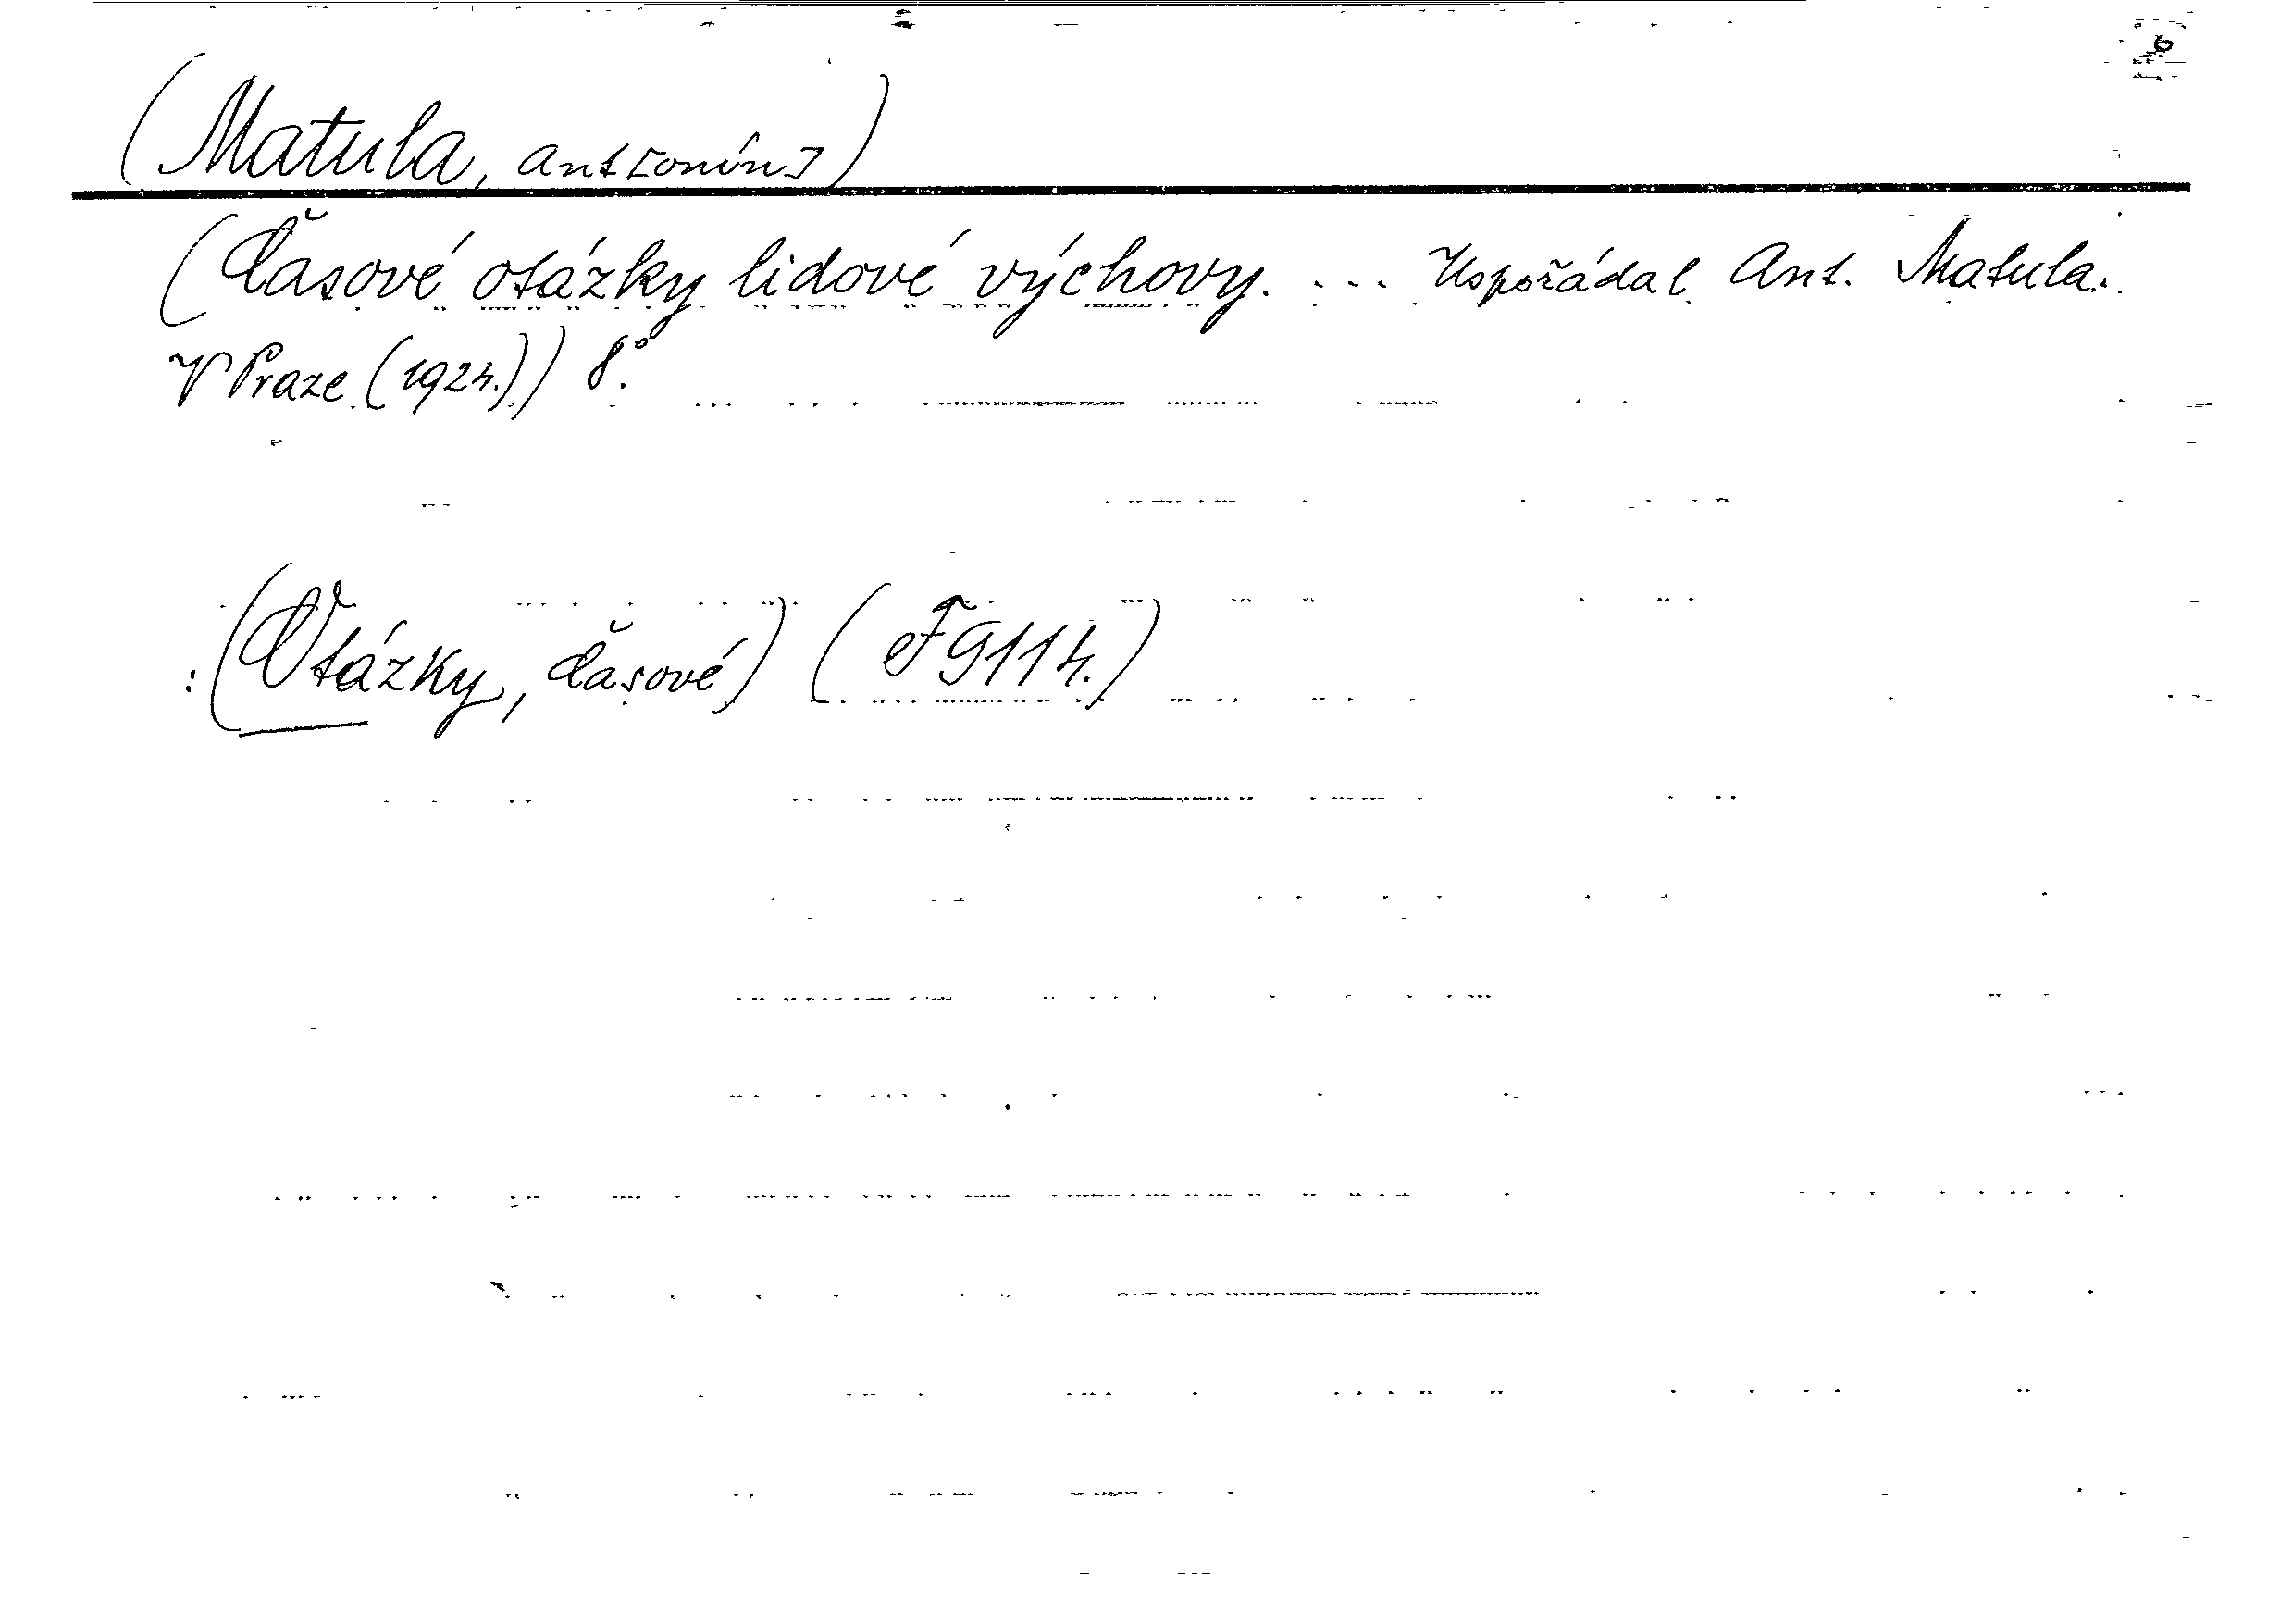 (Matula, Ant[onín])
(Časové otázky lidové výchovy. ... Uspořádal Ant. Matula.
V Praze (1924.)) 8°.
:(Otázky, časové) (F 9114.)